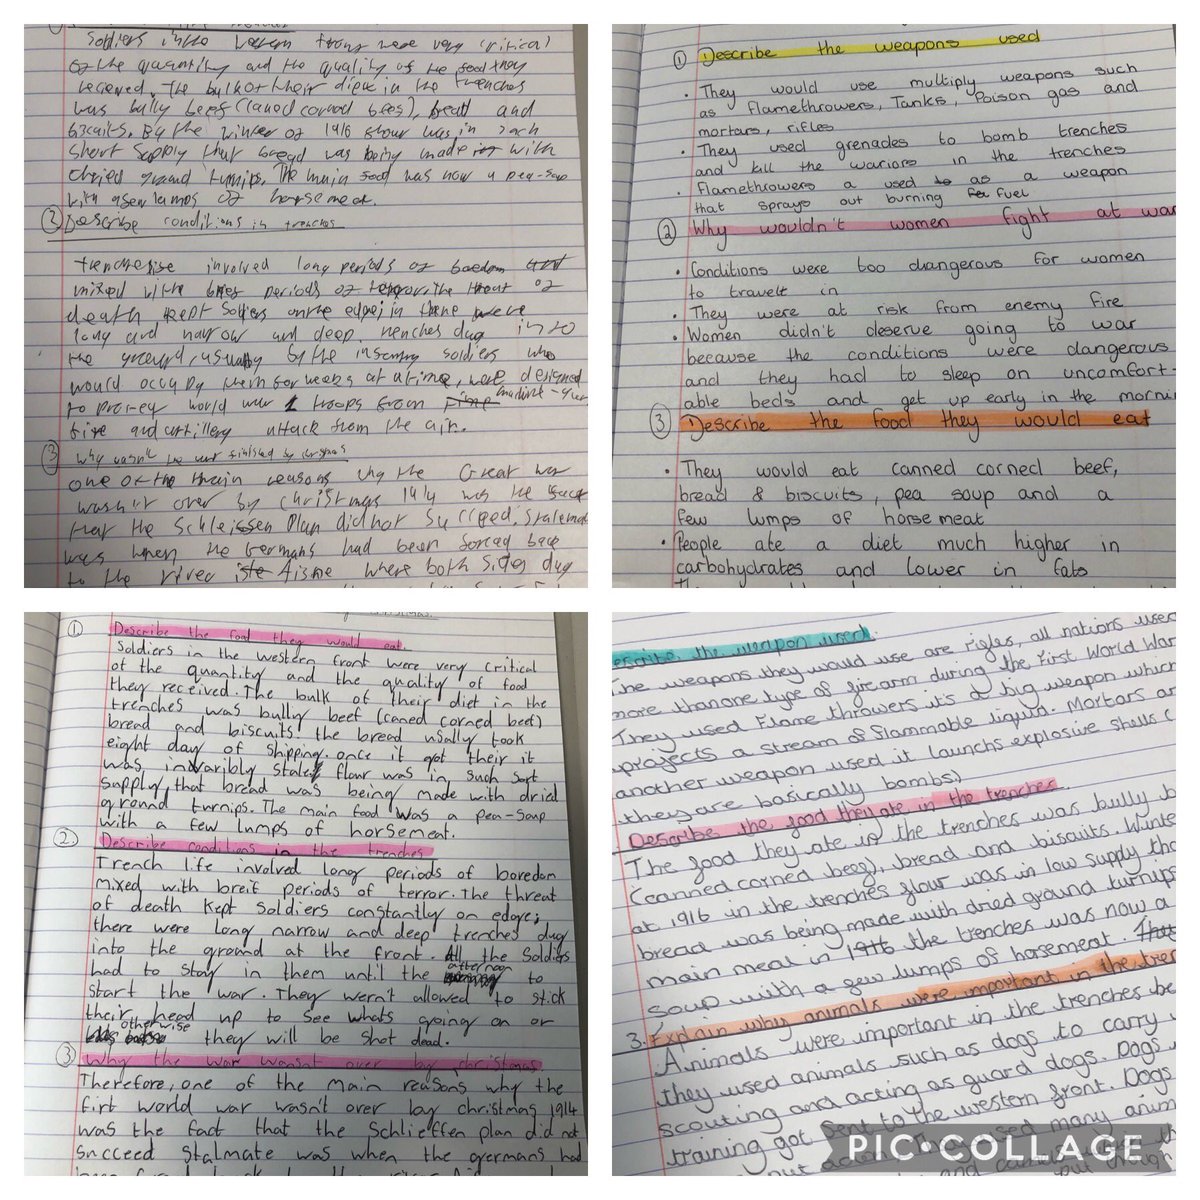 Soldiers in the western front were very critical
of the quantity and the quality of the food they
received. The bulk of their diet in the trenches
was bully beef (caned corned beef), bread and
biscuits. By the winter of 1916 flour was in such
short supply that bread was being made with
dried ground turnips. The main food was now a pea-soup
with a few lumps of horsemeat.
② Describe conditions in trenches
involved long periods of
mixed with periods of terror. The threat of
death kept soldiers on the edge, in there were
long and narrow and deep trenches dug into
the ground, usually by the soldiers who
would occupy them for weeks at a time, were designed
to world war 1 troops from machine-gun
fire and artillery attack from the air.
③ Why wasn't the war finished by christmas
one of the main reasons why the Great war
wasn't over by christmas 1914 was the fact
that the Plan did not succeed.
was when the Germans had been forced back
to the river Aisne where both sides dug
① Describe the weapons used
• They would use multiply weapons such
as flamethrowers, Tanks, Poison gas and
mortars, rifles
• They used grenades to bomb trenches
and kill the wariors in the trenches
• Flamethrowers a used as a weapon
that sprays out burning fuel
② Why wouldn't women fight at war
• Conditions were too dangerous for women
to travel in
• They were at risk from enemy fire
• Women didn't deserve going to war
because the conditions were dangerous
and they had to sleep on uncomfort-
able beds and get up early in the morni
③ Describe the food they would eat
• They would eat canned corned beef,
bread & biscuits, pea soup and a
few lumps of horse meat
• People ate a diet much higher in
carbohydrates and lower in fats
① Describe the food they would eat.
Soldiers in the western front were very critical
of the quantity and the quality of food
they received. The bulk of their diet in the
trenches was bully beef (caned corned beef)
bread and biscuits. the bread usally took
eight day of shipping. once it got their it
was invaribly stale, flour was in such sort
supply, that bread was being made with dried
ground turnips. The main food was a pea-soup
with a few lumps of horsemeat.
2. Describe conditions in the trenches
Trench life involved long periods of boredom
mixed with breif periods of terror. The threat
of death kept soldiers constantly on edge;
there were long narrow and deep trenches dug
into the ground at the front. All the soldiers
had to stay in them until the afternoon to
start the war. They wern't allowed to stick
their head up to see whats going on or
otherwise they will be shot dead.
③ Why the war wasn't over by christmas
Therefore, one of the main reasons why the
firt world war wasn't over by christmas 1914
was the fact that the Schlieffen plan did not
succeed stalmate was when the germans had
escribe the weapon used.
The weapons they would use are rifles, all nations used
more than one type of firearm during the First World War
They used Flame throwers it's a big weapon which
projects a stream of flammable liquid. Mortars are
another weapon used it launchs explosive shells (
they are basically bombs)
Describe the food they ate in the trenches
The food they ate in the trenches was bully b
(canned corned beef), bread and biscuits. Winte
at 1916 in the trenches flour was in low supply tha
bread was being made with dried ground turnips
main meat in 1916 the trenches was now a
soup with a few lumps of horsemeat.
3. Explain why animals were important in the tren
Animals were important in the trenches be
they used animals such as dogs to carry
scouting and acting as guard dogs. Dogs
training got sent to the western front. Dogs
many anim
PIC•COLLAGE